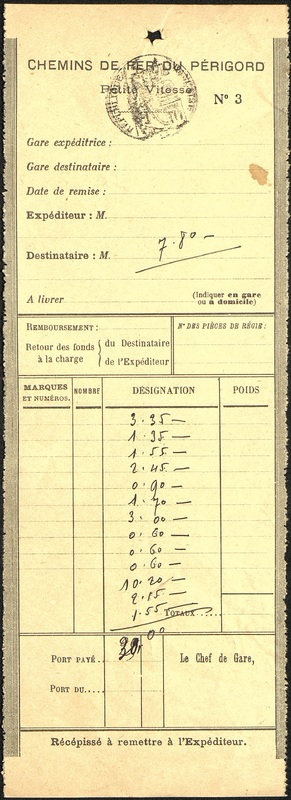 CHEMINS DE FER DU PÉRIGORD
Petite Vitesse
N° 3
Gare expéditrice :
Gare destinataire :
Date de remise :
Expéditeur : M.
7.80 —
Destinataire : M.
A livrer
(Indiquer en gare
ou à domicile)
REMBOURSEMENT :
Retour des fonds
à la charge
du Destinataire
de l'Expéditeur
N° DES PIÈCES DE RÉGIE :
MARQUES
ET NUMÉROS.
NOMBRE
DÉSIGNATION
POIDS
3.35 —
1.35 —
1.55 —
2.45 —
0.90 —
1.70 —
3.00 —
0.60 —
0.60 —
0.60 —
10.20 —
2.15 —
1.55
TOTAUX.....
00
PORT PAYÉ..
PORT DU.....
Le Chef de Gare,
Récépissé à remettre à l'Expéditeur.